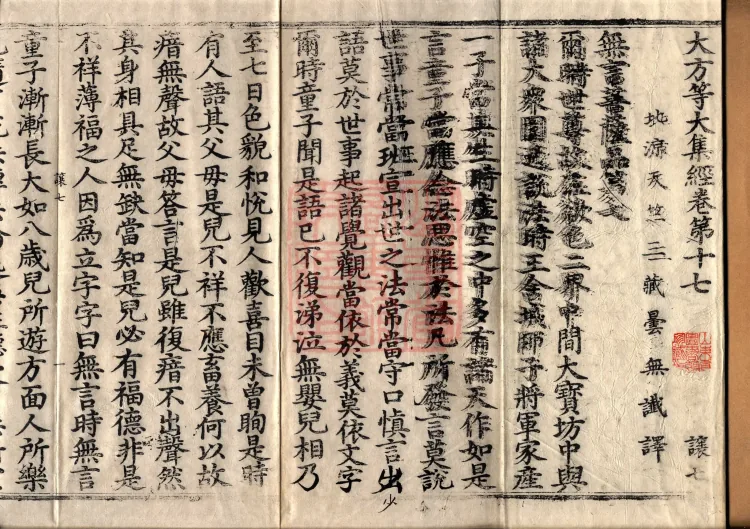 大方等大集經卷第十七 讓七
北涼天竺三藏曇無讖譯
無言菩薩品第六
爾時世尊故在欲色二界中間大寶坊中與
諸大衆圍遶說法時王舍城師子將軍家產
一子當其生時虛空之中多有諸天作如是
言童子當應念法思惟於法凡所發言莫說
世事常當班宣出世之法常當守口慎言出
少
語莫於世事起諸覺觀當依於義莫依文字
爾時童子聞是語已不復涕泣無嬰兒相乃
至七日色貌和悅見人歡喜目未曾眴是時
有人語其父母是兒不祥不應畜養何以故
瘖無聲故父母答言是兒雖復瘖不出聲然
其身相具足無缺當知是兒必有福德非是
不祥薄福之人因爲立字字曰無言時無言
讓七
童子漸漸長大如八歲兒所遊方面人所樂